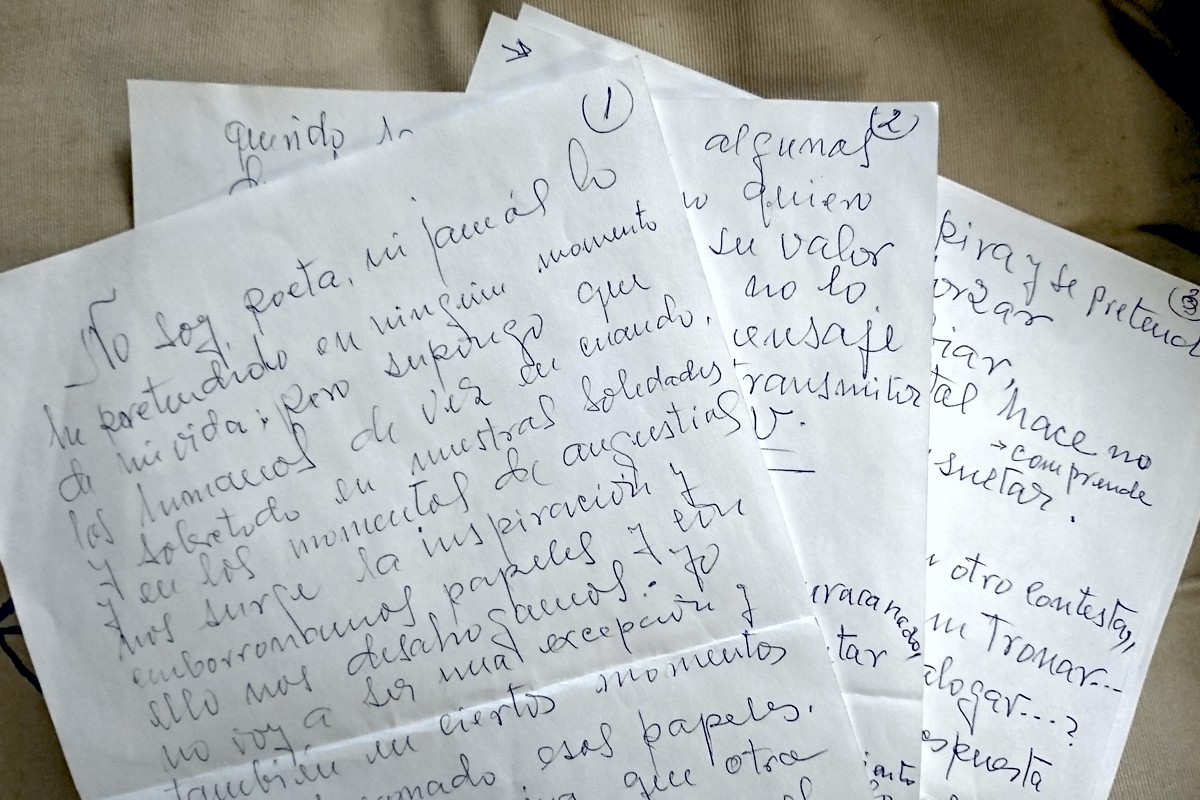 querido
1
No soy, poeta, ni jamás lo
he pretendido en ningún momento
de mi vida; pero supongo que
los humanos de vez en cuando,
y sobretodo en nuestras soledades
y en los momentos de angustias
nos surge la inspiración y
emborronamos papeles y con
ello nos desahogamos. Yo
no voy a ser una excepción y
también en ciertos momentos
esos papeles.
que otra
2
algunas
quiero
su valor
no lo
ensaje
transmitir
V.
uracanado,
tar
3
pira y se pretend
orzar
iar,
tal hace no
→ comprende
suetar.
otro contesta,,
Tronar...
alogar...?
espuesta